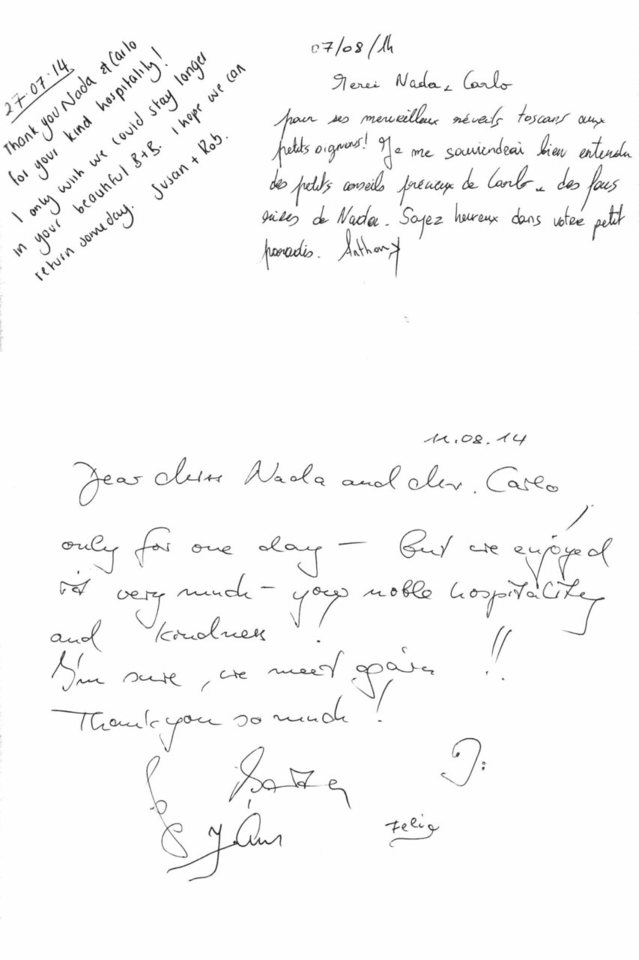 27.07.14
Thank you Nada & Carlo
for your kind hospitality!
I only wish we could stay longer
in your beautiful B+B. I hope we can
return someday. Susan + Rob.
07/08/14
Merci Nada & Carlo
pour ses merveilleux réveils toscans aux
petits oignons! Je me souviendrai bien entendu
des petits conseils précieux de Carlo & des fous
rires de Nada. Soyez heureux dans votre petit
paradis. Anthony
11.08.14
Dear Miss Nada and Mr. Carlo
only for one day – but we enjoyed
it very much – your noble hospitality
and kindness!
I'm sure, we meet again!!
Thank you so much!
Felix